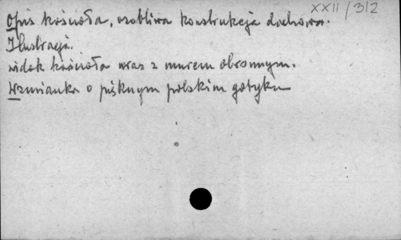 XXII/312
Opis kościoła, osobliwa konstrukcja dachowa.
Ilustracja.
widok kościoła wraz z murem obronnym.
Wzmianka o pięknym polskim gotyku